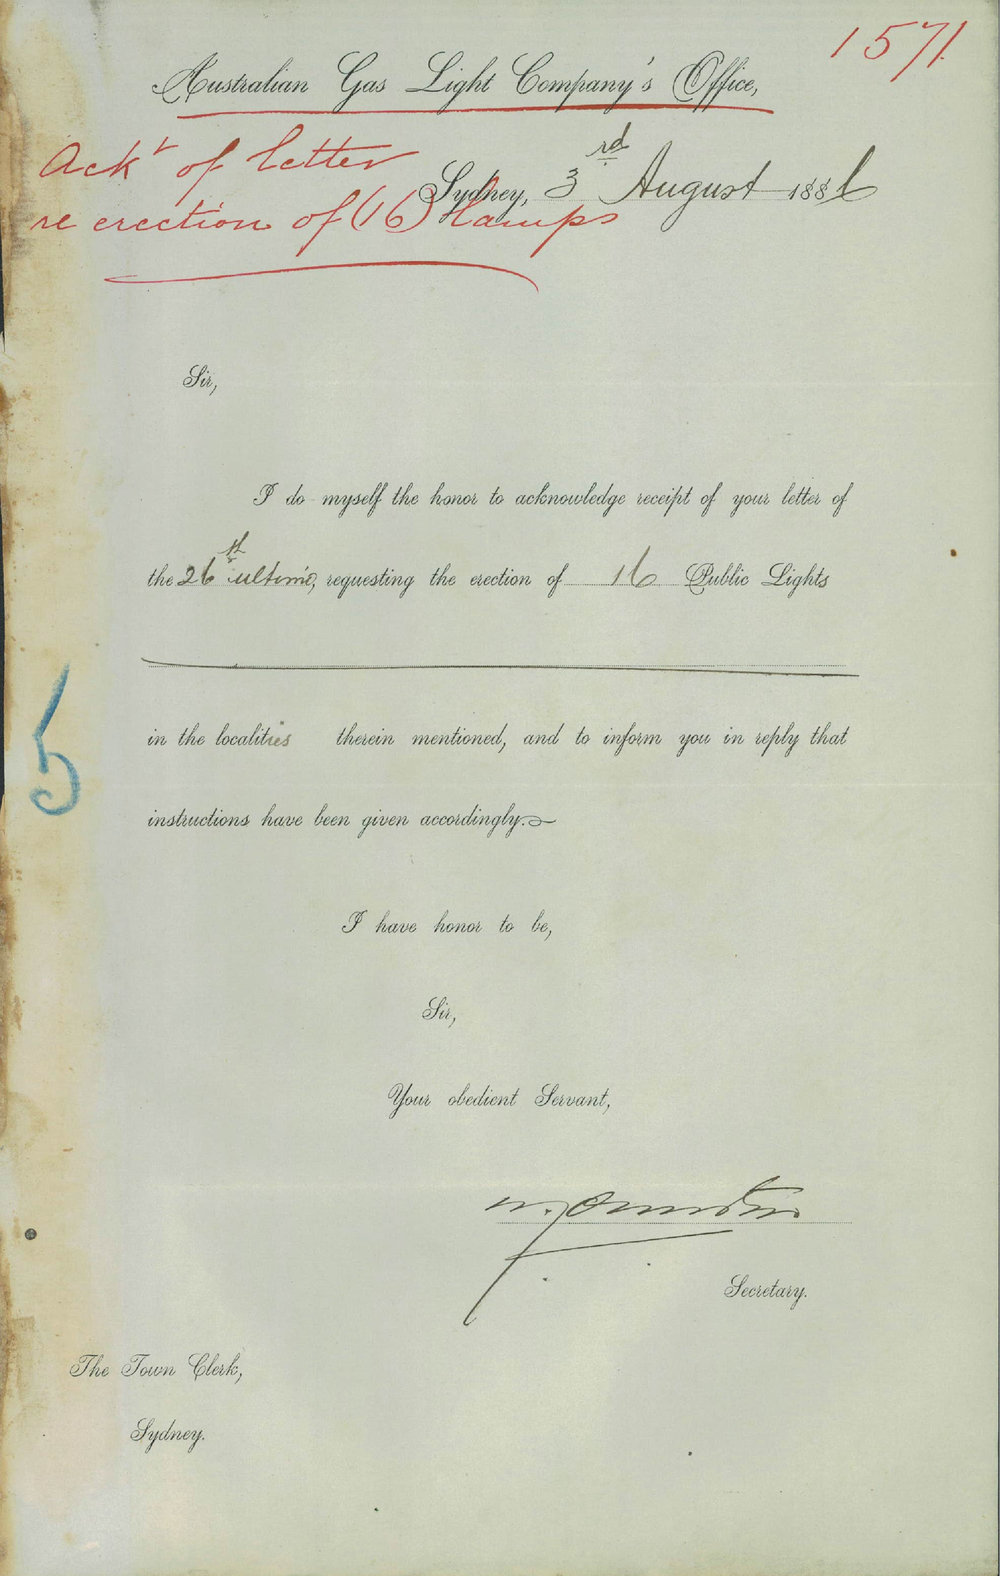 1571.
Australian Gas Light Company's Office,
Ackt of letter
re erection of (16) lamps
Sydney, 3rd August 1886
Sir,
I do myself the honor to acknowledge receipt of your letter of
the 26th ultimo, requesting the erection of 16 Public Lights
in the localities therein mentioned, and to inform you in reply that
instructions have been given accordingly.
5
I have honor to be,
Sir,
Your obedient Servant,
Secretary.
The Town Clerk,
Sydney.